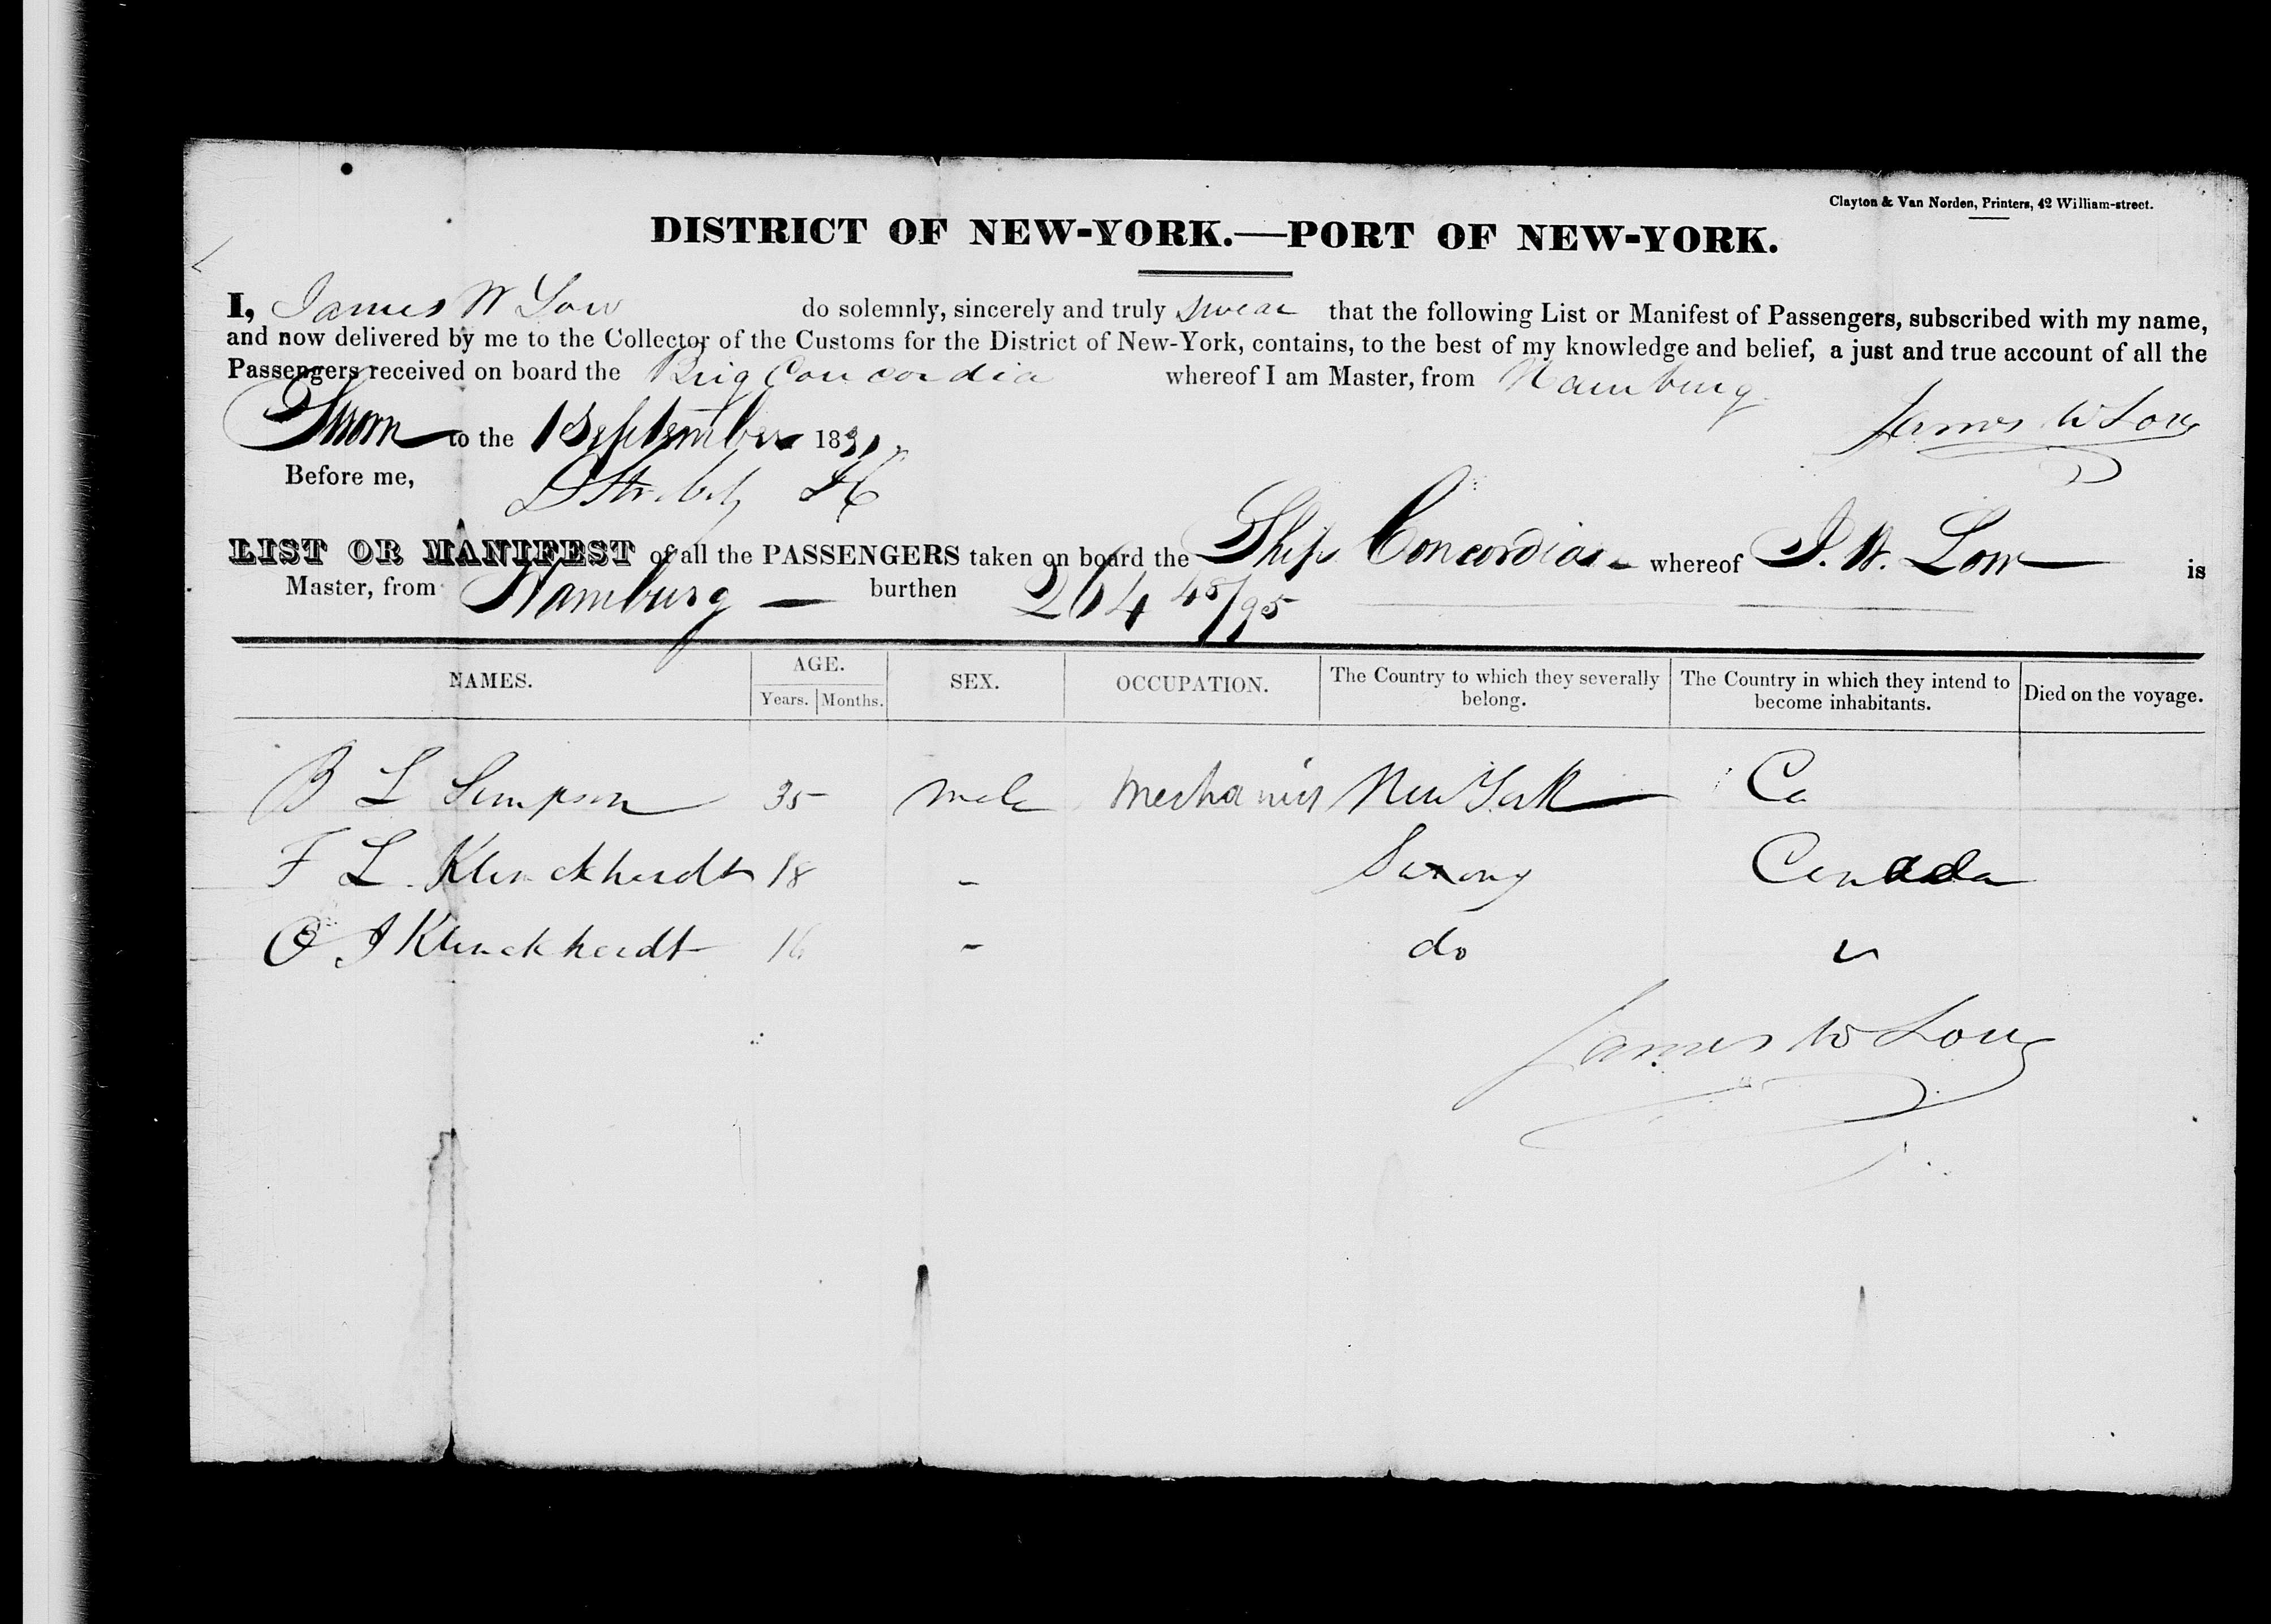 Clayton & Van Norden, Printers, 42 William-street.
DISTRICT OF NEW-YORK.—PORT OF NEW-YORK.
I, James W Low do solemnly, sincerely and truly swear that the following List or Manifest of Passengers, subscribed with my name,
and now delivered by me to the Collector of the Customs for the District of New-York, contains, to the best of my knowledge and belief, a just and true account of all the
Passengers received on board the Brig Concordia whereof I am Master, from Hamburg
Sworn to the 1 September 1831
James W Low
Before me,
LIST OR MANIFEST of all the PASSENGERS taken on board the Ship Concordia whereof J. W. Low is
Master, from Hamburg — burthen 264 45/95
NAMES. AGE. SEX. OCCUPATION. The Country to which they severally belong. The Country in which they intend to become inhabitants. Died on the voyage.
Years. Months.
B L Simpson 35 male Mechanics New York Ca
F L Klinckhardt 18 - Saxony Canada
J Klinckhardt 16 - do "
James W Low